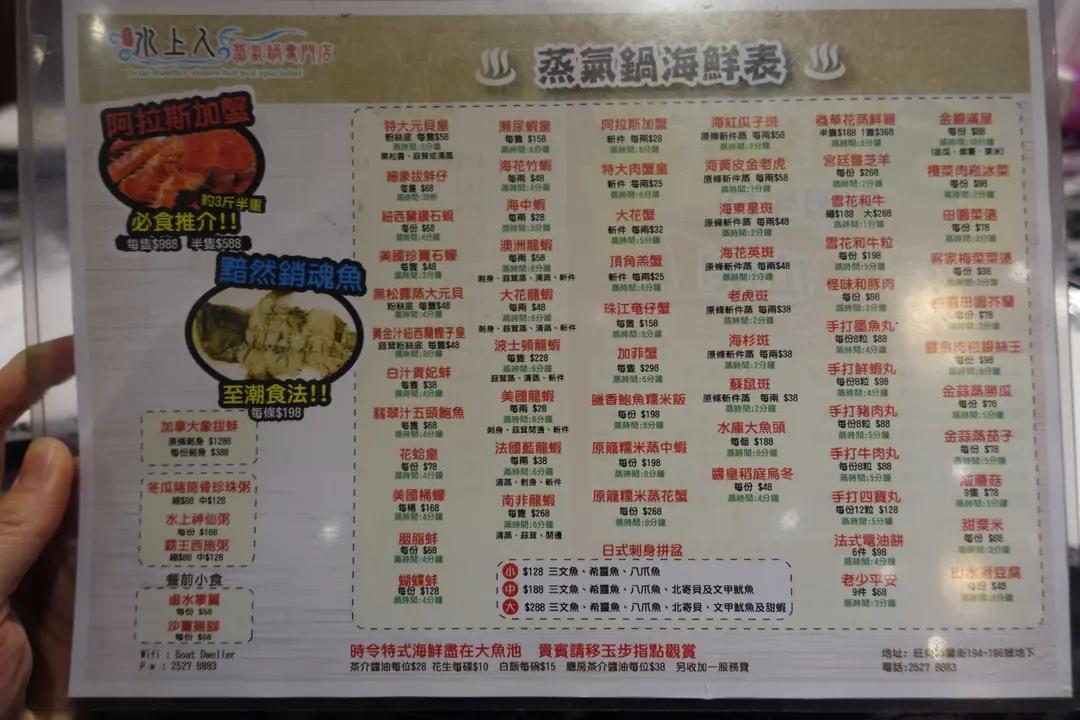 水上人
蒸氣鍋專門店
Boat dweller steam hot pot specialist
蒸氣鍋海鮮表
阿拉斯加蟹
約3斤半重
必食推介!!
每隻$988 半隻$588
黯然銷魂魚
至潮食法!!
每條$198
加拿大象拔蚌
原條刺身 $1288
每份刺身 $388
冬瓜豬筒骨珍珠粥
細$88 中$128
水上神仙粥
每份 $168
霸王西施粥
細$88 中$128
餐前小食
鹵水掌翼
每份 $68
沙薑鳳腳
每份 $68
Wifi : Boat Dweller
P w : 2527 8883
特大元貝皇
粉絲底 每隻$58
蒸時間:5分鐘
黑松露、蒜茸或清蒸
細象拔蚌仔
每隻 $68
紐西蘭鑽石蜆
每份 $68
蒸時間:4分鐘
美國珍寶石蠔
每隻 $48
蒸時間:3分鐘
黑松露蒸大元貝
粉絲底 每隻$48
蒸時間:4分鐘
黃金汁紐西蘭蟶子皇
蒜茸粉絲底 每隻$48
蒸時間:3分鐘
白汁貴妃蚌
每隻 $38
蒸時間:4分鐘
翡翠汁五頭鮑魚
每隻 $68
蒸時間:4分鐘
花蛤皇
每份 $78
蒸時間:4分鐘
美國桶蠔
每桶 $168
蒸時間:4分鐘
胭脂蚌
每份 $68
蒸時間:4分鐘
蝴蝶蚌
每份 $128
蒸時間:4分鐘
瀨尿蝦皇
每隻 $158
蒸時間:6分鐘
海花竹蝦
每兩 $48
蒸時間:4分鐘
海中蝦
每兩 $28
蒸時間:3分鐘
澳洲龍蝦
每兩 $58
蒸時間:6分鐘
刺身、蒜茸蒸、清蒸、斬件
大花龍蝦
每兩 $48
蒸時間:6分鐘
刺身、蒜茸蒸、清蒸、斬件
波士頓龍蝦
每隻 $228
蒸時間:6分鐘
蒜茸蒸、清蒸、斬件
美國龍蝦
每兩 $28
蒸時間:6分鐘
刺身、蒜茸開邊、斬件
法國藍龍蝦
每兩 $38
蒸時間:6分鐘
清蒸、刺身、斬件
南非龍蝦
每隻 $268
蒸時間:6分鐘
清蒸、蒜茸、開邊
阿拉斯加蟹
斬件 每兩$28
蒸時間:5分鐘
特大肉蟹皇
斬件 每兩$25
蒸時間:6分鐘
大花蟹
斬件 每兩$32
蒸時間:5分鐘
頂角羔蟹
斬件 每兩$25
蒸時間:6分鐘
珠江奄仔蟹
每隻 $158
蒸時間:8分鐘
加菲蟹
每隻 $298
蒸時間:6分鐘
臘香鮑魚糯米飯
每份 $198
蒸時間:8分鐘
原籠糯米蒸中蝦
每份 $198
蒸時間:8分鐘
原籠糯米蒸花蟹
每份 $268
蒸時間:8分鐘
海紅瓜子斑
原條斬件蒸 每兩$58
蒸時間:2分鐘
海黃皮金老虎
原條斬件蒸 每兩$58
海東星斑
原條斬件蒸 每兩$48
蒸時間:2分鐘
海花英斑
原條斬件蒸 每兩$48
蒸時間:2分鐘
老虎斑
原條斬件蒸 每兩$38
蒸時間:2分鐘
海杉斑
原條斬件蒸 每兩$38
蒸時間:2分鐘
蘇鼠斑
原條斬件蒸 每兩 $38
蒸時間:2分鐘
水庫大魚頭
每個 $188
蒸時間:6分鐘
醬皇稻庭烏冬
每份 $48
蒸時間:4分鐘
蟲草花蒸鮮雞
半隻$188 1隻$368
蒸時間:8分鐘
宮廷醬芝羊
每份 $268
蒸時間:2分鐘
雪花和牛
細$188 大$268
蒸時間:1分鐘
雪花和牛粒
每份 $198
蒸時間:5分鐘
怪味和豚肉
每份 $98
蒸時間:3分鐘
手打墨魚丸
每份8粒 $88
蒸時間:4分鐘
手打鮮蝦丸
每份8粒 $98
蒸時間:4分鐘
手打豬肉丸
每份8粒 $88
蒸時間:5分鐘
手打牛肉丸
每份8粒 $88
蒸時間:5分鐘
手打四寶丸
每份12粒 $128
蒸時間:5分鐘
法式電油餅
6件 $98
蒸時間:4分鐘
老少平安
9件 $68
蒸時間:3分鐘
金銀滿屋
每份 $88
蒸時間:10分鐘
(金瓜、紫薯、粟米)
欖菜肉崧冰菜
每份 $98
蒸時間:2分鐘
田園菜遠
每份 $78
蒸時間:3分鐘
客家梅菜菜遠
每份 $88
蒸時間:3分鐘
田園芥蘭
每份 $78
肉崧銀絲王
每份 $98
金蒜蒸勝瓜
每份 $78
蒸時間:5分鐘
金蒜蒸茄子
每份 $78
蒸時間:5分鐘
蘑菇
9隻 $78
甜粟米
每份 $68
豆腐
每份 $48
日式刺身拼盆
小 $128 三文魚、希靈魚、八爪魚
中 $188 三文魚、希靈魚、八爪魚、北寄貝及文甲魷魚
大 $288 三文魚、希靈魚、八爪魚、北寄貝、文甲魷魚及甜蝦
時令特式海鮮盡在大魚池 貴賓請移玉步指點觀賞
茶介醬油每位$28 花生每碟$10 白飯每碗$15 廳房茶介醬油每位$38 另收加一服務費
地址: 旺角 街194-196號地下
電話:2527 8883